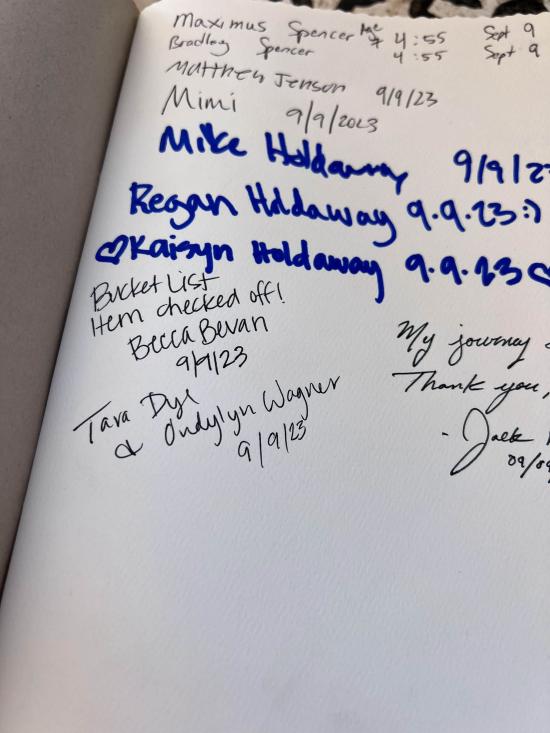 Maximus Spencer Age 7 4:55 Sept 9
Bradley Spencer 4:55 Sept 9
Matthew Jenson 9/9/23
Mimi 9/9/2023
Mike Holdaway 9/9/23
Regan Holdaway 9.9.23 :)
♡Kaisyn Holdaway 9.9.23♡
Bucket List
Item checked off!
Becca Bevan
9/9/23
Tara Dye
& Ondylyn Wagner
9/9/23
My journey
Thank you,
- Jack
09/09